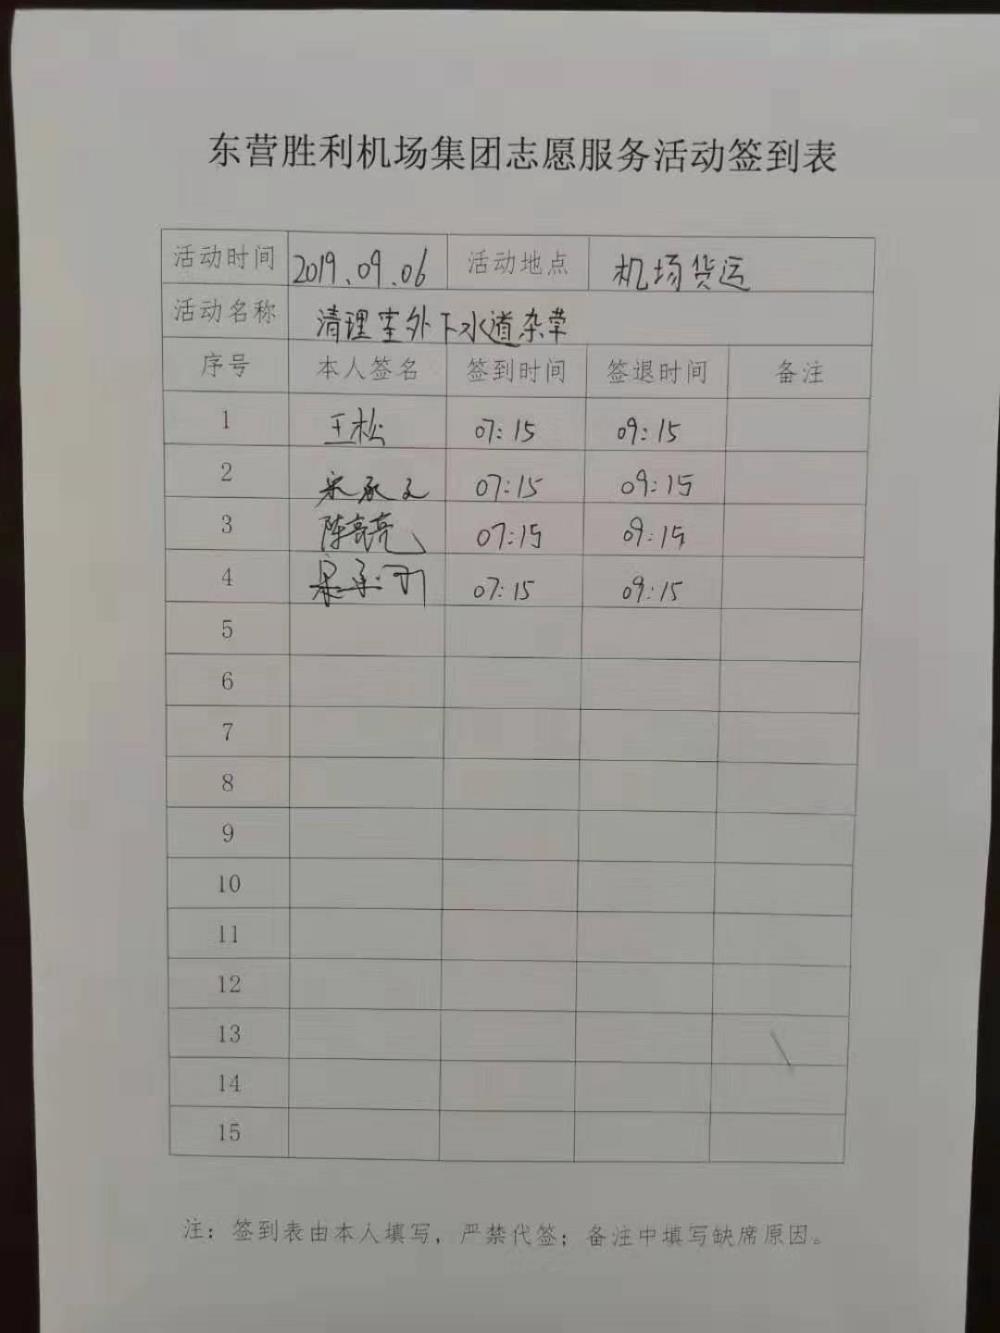 东营胜利机场集团志愿服务活动签到表
活动时间 2019.09.06 活动地点 机场货运
活动名称 清理室外下水道杂草
序号 本人签名 签到时间 签退时间 备注
1 王松 07:15 09:15
2 07:15 09:15
3 陈亮亮 07:15 09:15
4 07:15 09:15
5
6
7
8
9
10
11
12
13
14
15
注：签到表由本人填写，严禁代签；备注中填写缺席原因。